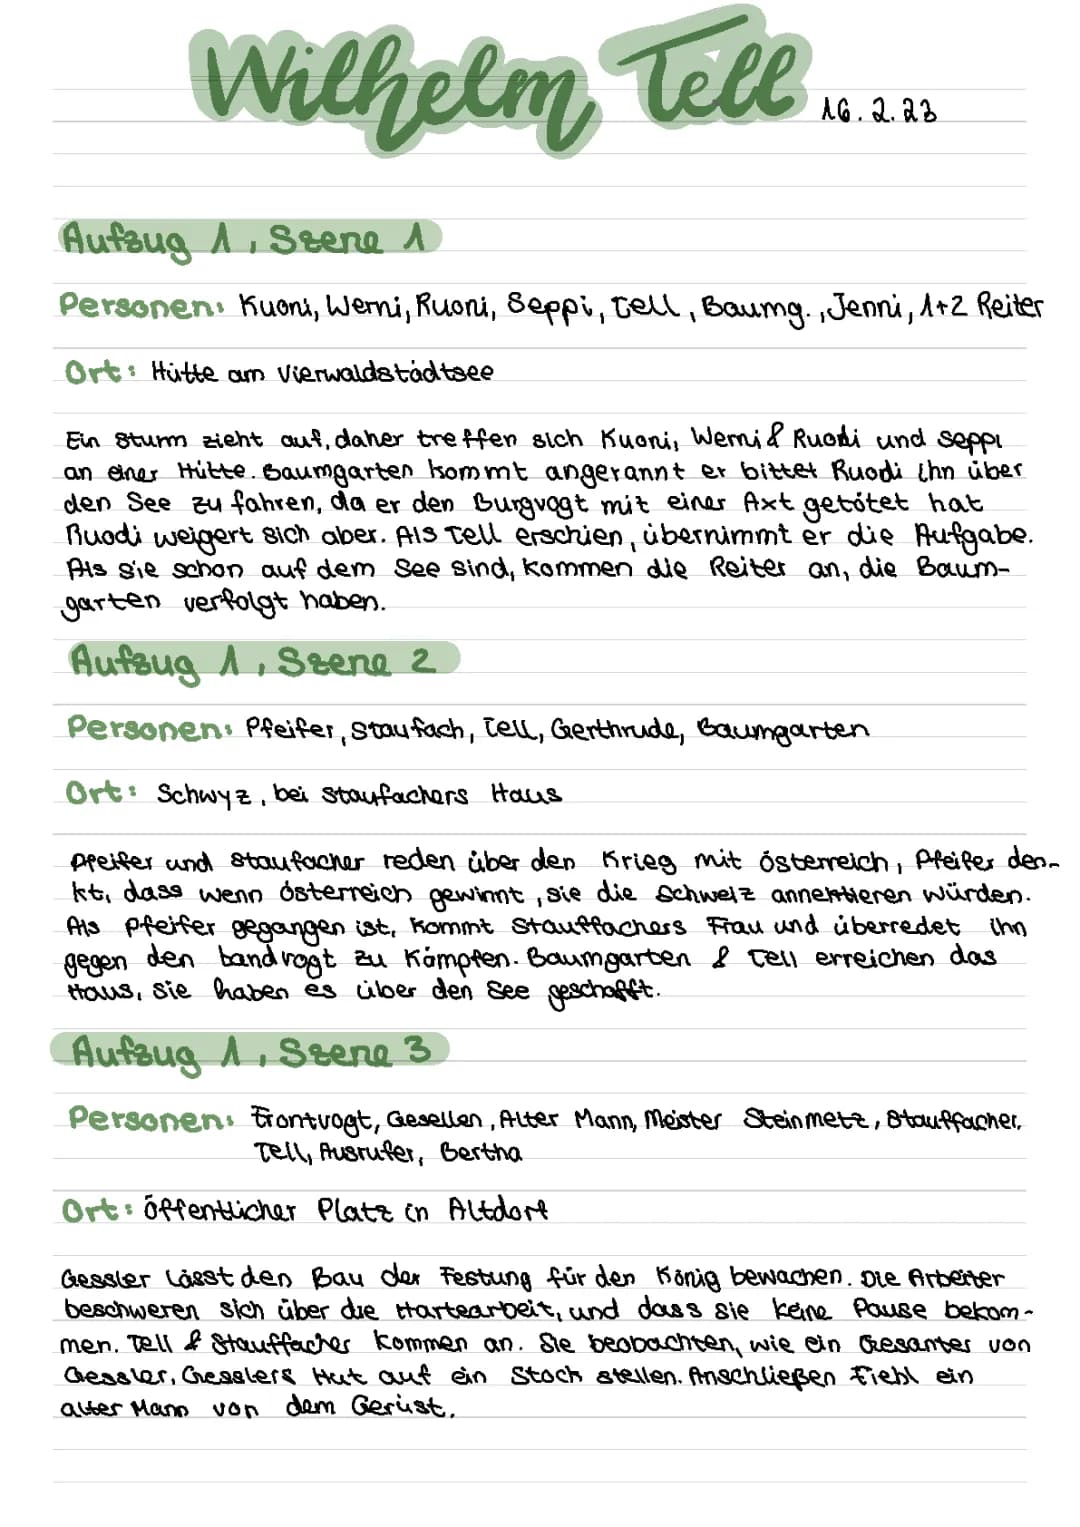 Wilhelm Tell
16.2.23
Aufzug 1, Szene 1
Personen: Kuoni, Werni, Ruoni, Seppi, Tell, Baumg., Jenni, 1+2 Reiter
Ort: Hütte am Vierwaldstädtsee
Ein Sturm zieht auf, daher treffen sich Kuoni, Werni & Ruodi und Seppi
an einer Hütte. Baumgarten kommt angerannt er bittet Ruodi ihn über
den See zu fahren, da er den Burgvogt mit einer Axt getötet hat
Ruodi weigert sich aber. Als Tell erschien, übernimmt er die Aufgabe.
Als sie schon auf dem See sind, kommen die Reiter an, die Baum-
garten verfolgt haben.
Aufzug 1, Szene 2
Personen: Pfeifer, Staufach, Tell, Gerthrude, Baumgarten
Ort: Schwyz, bei Staufachers Haus
Pfeifer und Staufacher reden über den Krieg mit Österreich, Pfeifer den-
kt, dass wenn Österreich gewinnt, sie die Schweiz annektieren würden.
Als Pfeifer gegangen ist, kommt Stauffachers Frau und überredet ihn
gegen den Landvogt zu kämpfen. Baumgarten & Tell erreichen das
Haus, sie haben es über den See geschafft.
Aufzug 1, Szene 3
Personen: Frontvogt, Gesellen, Alter Mann, Meister Steinmetz, Stauffacher,
Tell, Ausrufer, Bertha
Ort: Öffentlicher Platz in Altdorf
Gessler lässt den Bau der Festung für den König bewachen. Die Arbeiter
beschweren sich über die Hartearbeit, und dass sie keine Pause bekom-
men. Tell & Stauffacher kommen an. Sie beobachten, wie ein Gesanter von
Gessler, Gesslers Hut auf ein Stock stellen. Anschließen fiehl ein
alter Mann von dem Gerüst.